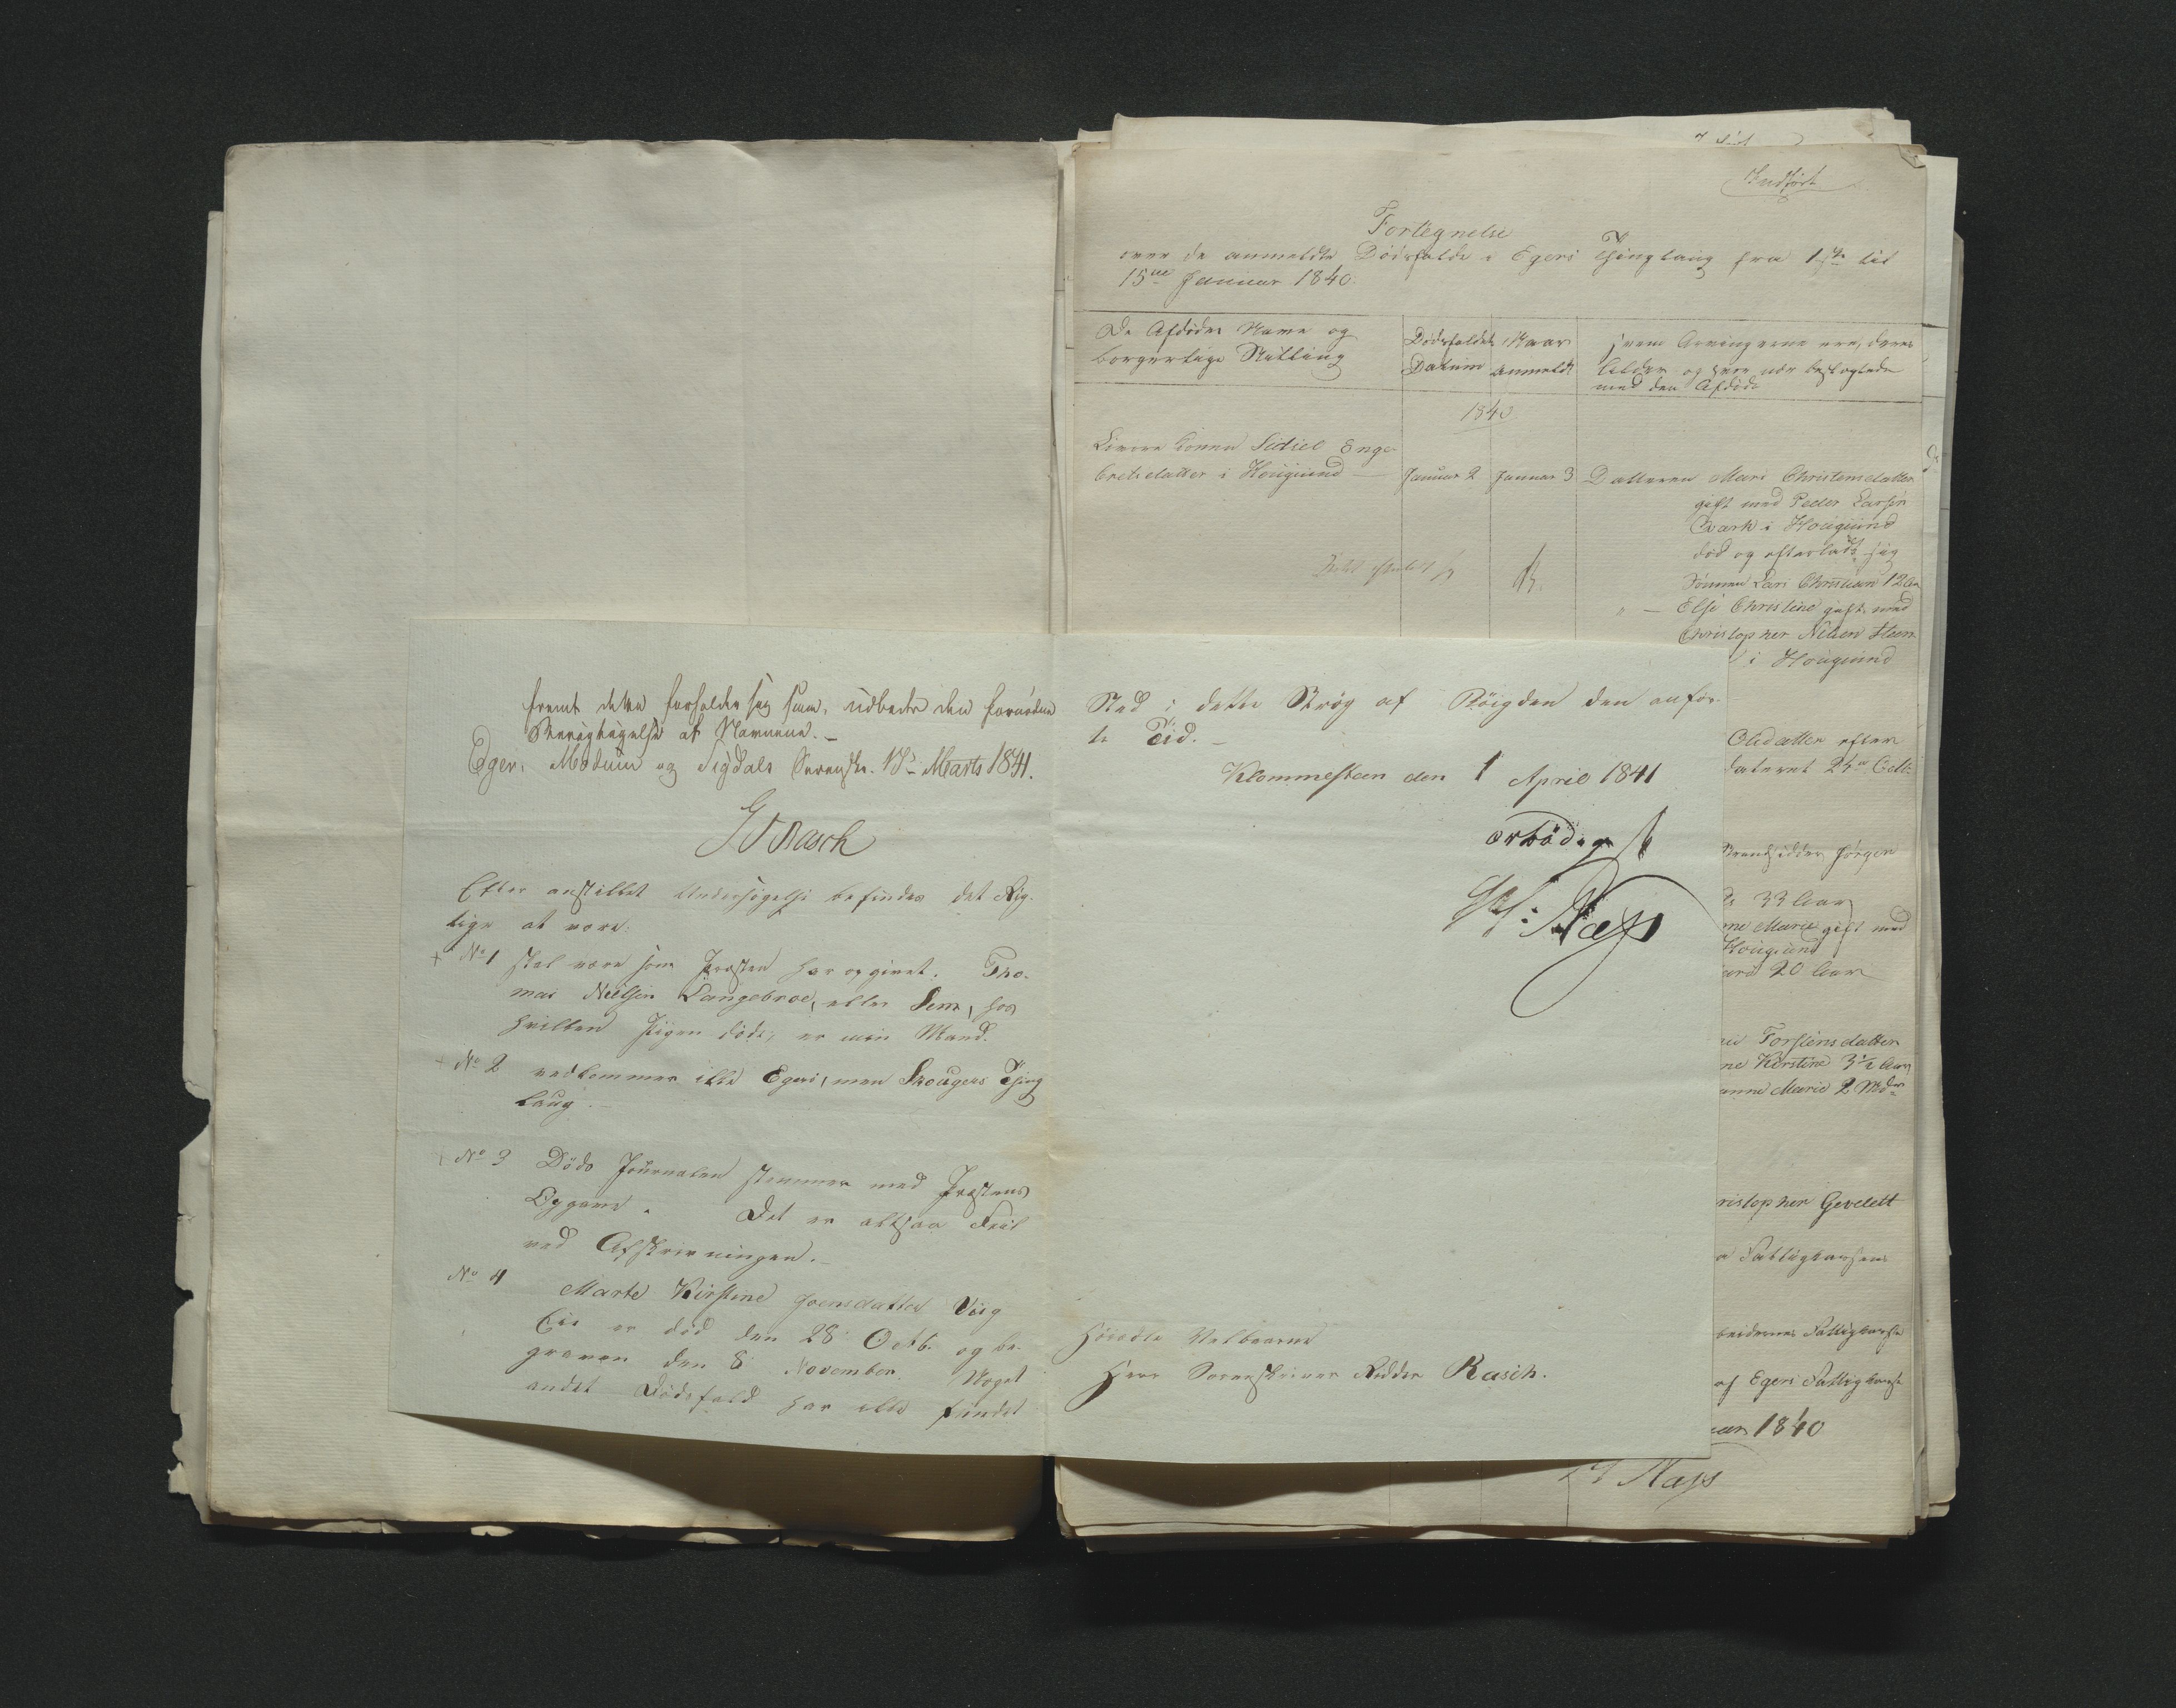 Indført
Fortegnelse
over de anmeldte Dødsfalde i Egers Thinglaug fra 1ste til
15de Januar 1840.
De Afdødes Navn og
borgerlige Stilling
Dødsfaldets
Datum
Naar
anmeldt
hvem Arvingerne ere, deres
Alder og hvor nær beslægtede
med den Afdøde
1840
konen Sidsel Enge-
bretsdatter i Hougsund
Januar 2
Januar 3
Datteren Mari Christensdatter
gift med Peder Larsen
Qvark i Hougsund
død og efterladt sig
Sønnen Lars Christian 12 Aar
" — Else Christine gift med
Christopher Nilsen Steen
i Hougsund
Olsdatter efter
dateret 24de Octb:
Strandsidder Jørgen
33 Aar
ne Marie gift med
Hougsund
20 Aar
Torstensdatter
ne Kirstine 3½ Aar
anne Marie 2 Mdr
ristopher Gevelett
a Fattigkassen
Fattigkasse
af Egers Fattigkasse
uar 1840
Næss
fremt dette forholder sig saa, udbedes den fornødne
Berigtigelse af Navnene. –
Eger, Modum og Sigdals Sorenskr. Marts 1841.
Rasch
Efter anstillet Undersøgelse befindes det Rig-
tige at være:
+ No 1 skal være som Præsten har opgivet. Tho-
mas Nielsen Langebroe, eller Sem, hos
hvilken Pigen døde, er min Mand.
+ No 2 vedkommer ikke Egers, men Skougers Thing
laug. –
+ No 3 Døds Journalen stemmer med Præstens
Opgave. Det er altsaa Feil
ved Afskrivningen. –
No 4 Marte Kirstine Joensdatter Viig
Eie er død den 28 Octb. og be-
graven den 8 November. Noget
andet Dødsfald har ikke fundet
Sted i dette Strøg af Bøigden den anfør-
te Tid. –
Klommesteen den 1 April 1841
ærbødigst
Næss
Høiædle Velbaarne
Herr Sorenskriver Ridder Rasch.